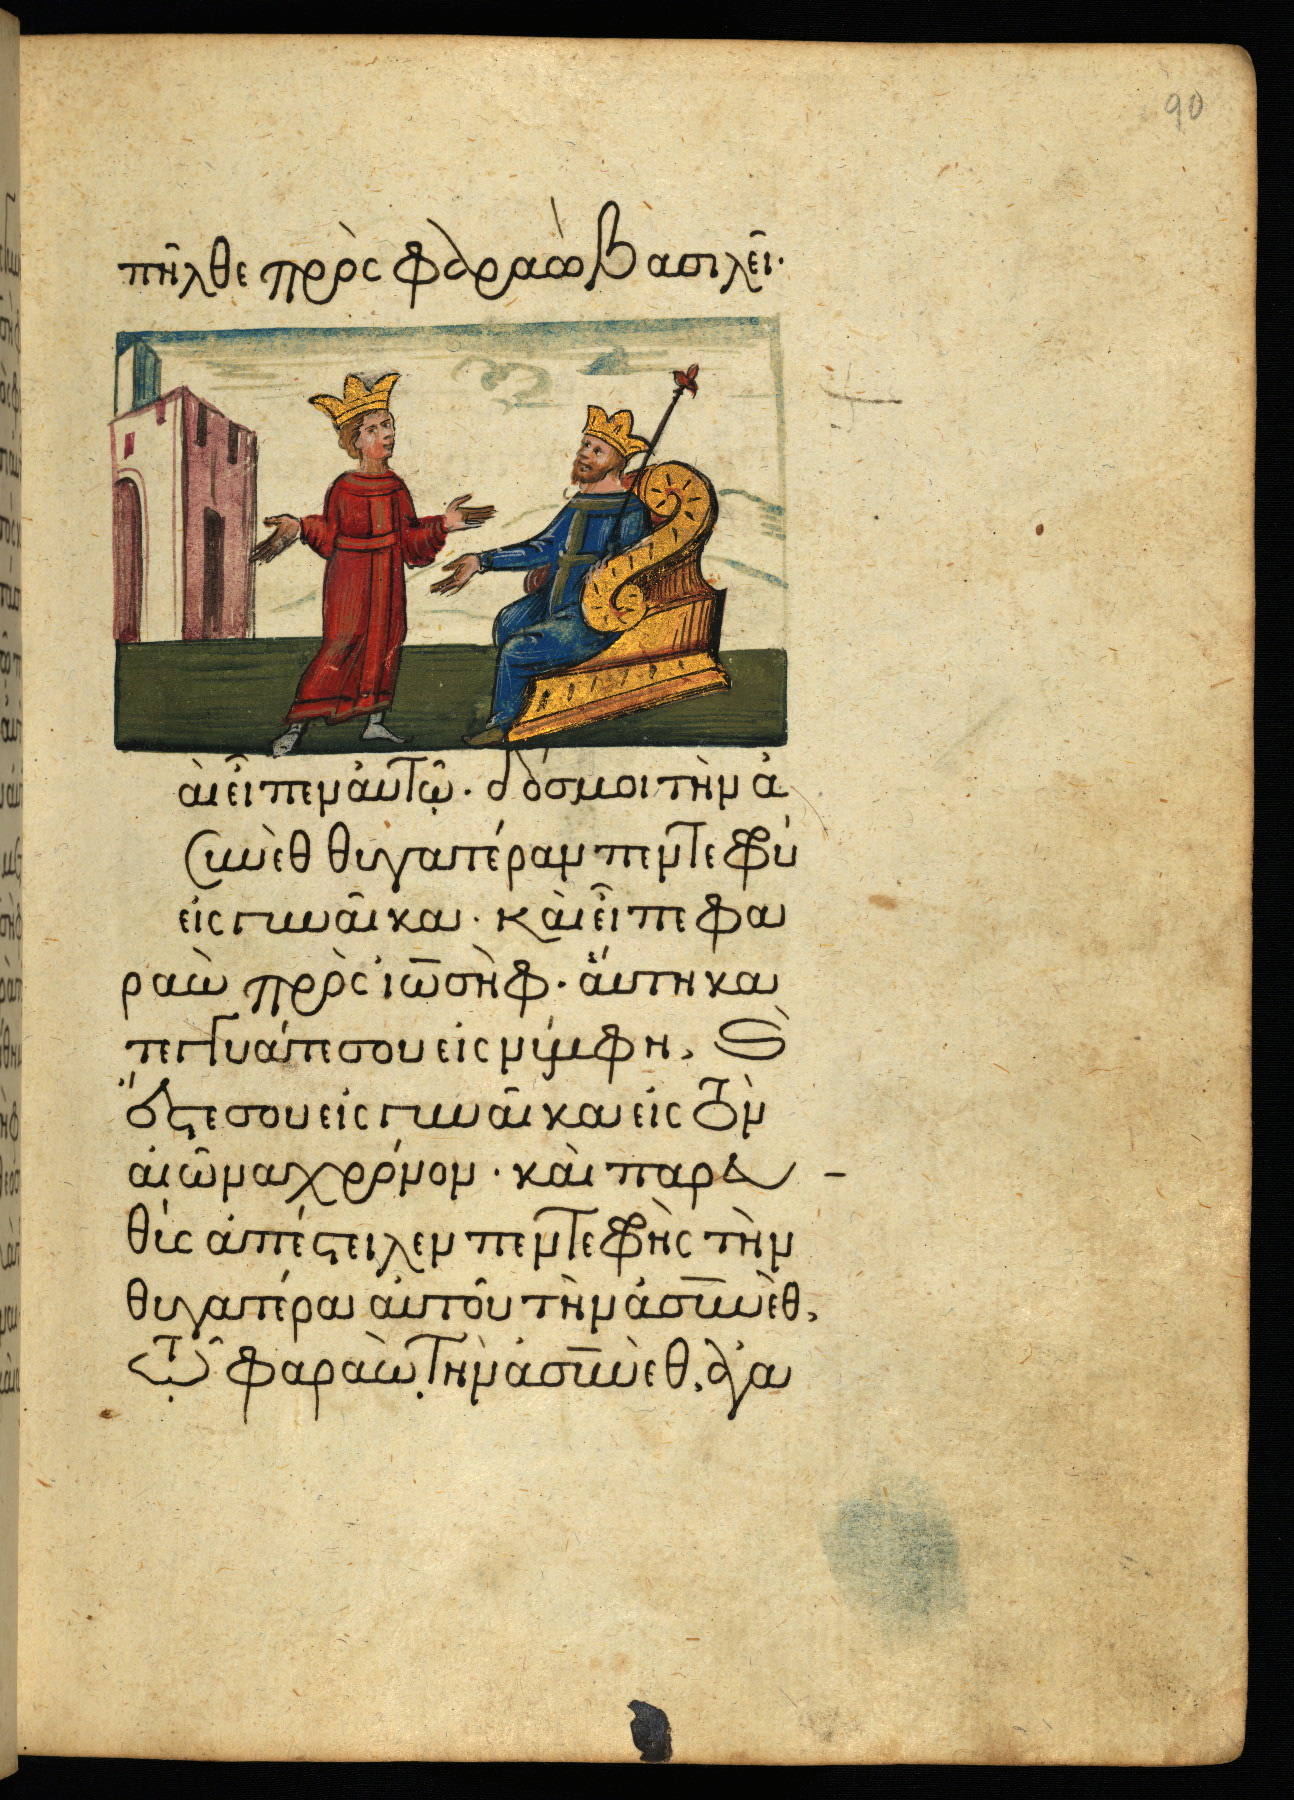 90
πῆλθε πρὸς φαραὼ βασιλεῖ·
αὶ εἶπεν ἀυτῶ· δόσμοι τὴν ἀ
συνὲθ θυγατέραν πεντεφύ
εἰς γυναῖκαι· κὰι εἶπε φα
ραὼ πρὸς ἰωσὴφ· ἄυτη και
σου εἰς νύμφη,
σου εἰς γυναῖκαι εἰς τὸν
αἰῶναχρόνον· κὰι παρευ
θὺς ἀπέστειλεν πεντεφὴς τὴν
θυγατέραι ἀυτοῦ τὴν ἀσυνὲθ,
τῶ φαραὼ τὴν ἀσυνὲθ,